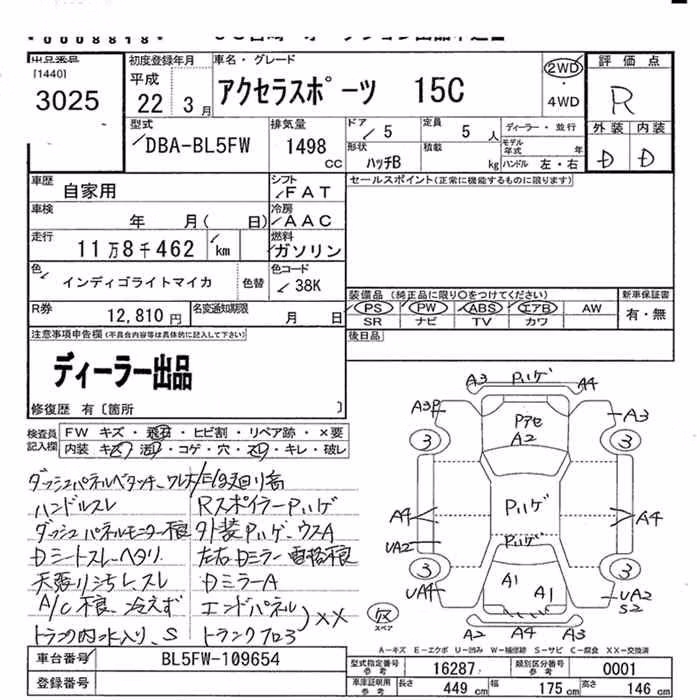 [1440]
3025
初度登録年月
平成
22 3月
車名・グレード
アクセラスポーツ 15C
2WD
・
4WD
評価点
R
外装 内装
D D
型式
DBA-BL5FW
排気量
1498
CC
ドア
5
定員
5人
形状
ハッチB
積載
kg
ディーラー・並行
モデル年式 年
ハンドル 左・右
車歴
自家用
シフト
FAT
車検
年 月( 日)
冷房
AAC
走行
11万8千462 km
燃料
ガソリン
色
インディゴライトマイカ
色替
色コード
38K
R券
12,810円
名変通知期限
月 日
セールスポイント(正常に機能するものに限ります)
装備品 (純正品に限り○をつけてください)
新車保証書
PS PW ABS エアB AW
SR ナビ TV カワ
有・無
後日品
注意事項申告欄(不具合内容等は具体的に記入して下さい)
ディーラー出品
修復歴 有〔箇所 〕
検査員記入欄
FW キズ・飛石・ヒビ割・リペア跡・×要
内装 キズ・汚レ・コゲ・穴・スレ・キレ・破レ
ハンドルスレ
RスポイラーPハゲ
ダッシュパネルモニター不良
外装Pハゲ、ウスA
Dシートスレヘタリ
天張りシミレ、スレ
DミラーA
A/C不良、冷えず
エンドパネル
XX
トランクフロア
A3 Pハゲ A4
A3P
A3
Pアセ
A2
3 3
A4
Pハゲ
A4
UA2
Pハゲ
3 3
UA4
A1 A1
UA2
S2
スペア
A2 A4 A3
A-キズ E-エクボ U-凹み W-補修跡 S-サビ C-腐食 XX-交換済
車台番号
BL5FW-109654
登録番号
型式指定番号参考
16287
類別区分番号参考
0001
車庫証明用参考
長さ 449cm
幅 175cm
高さ 146cm